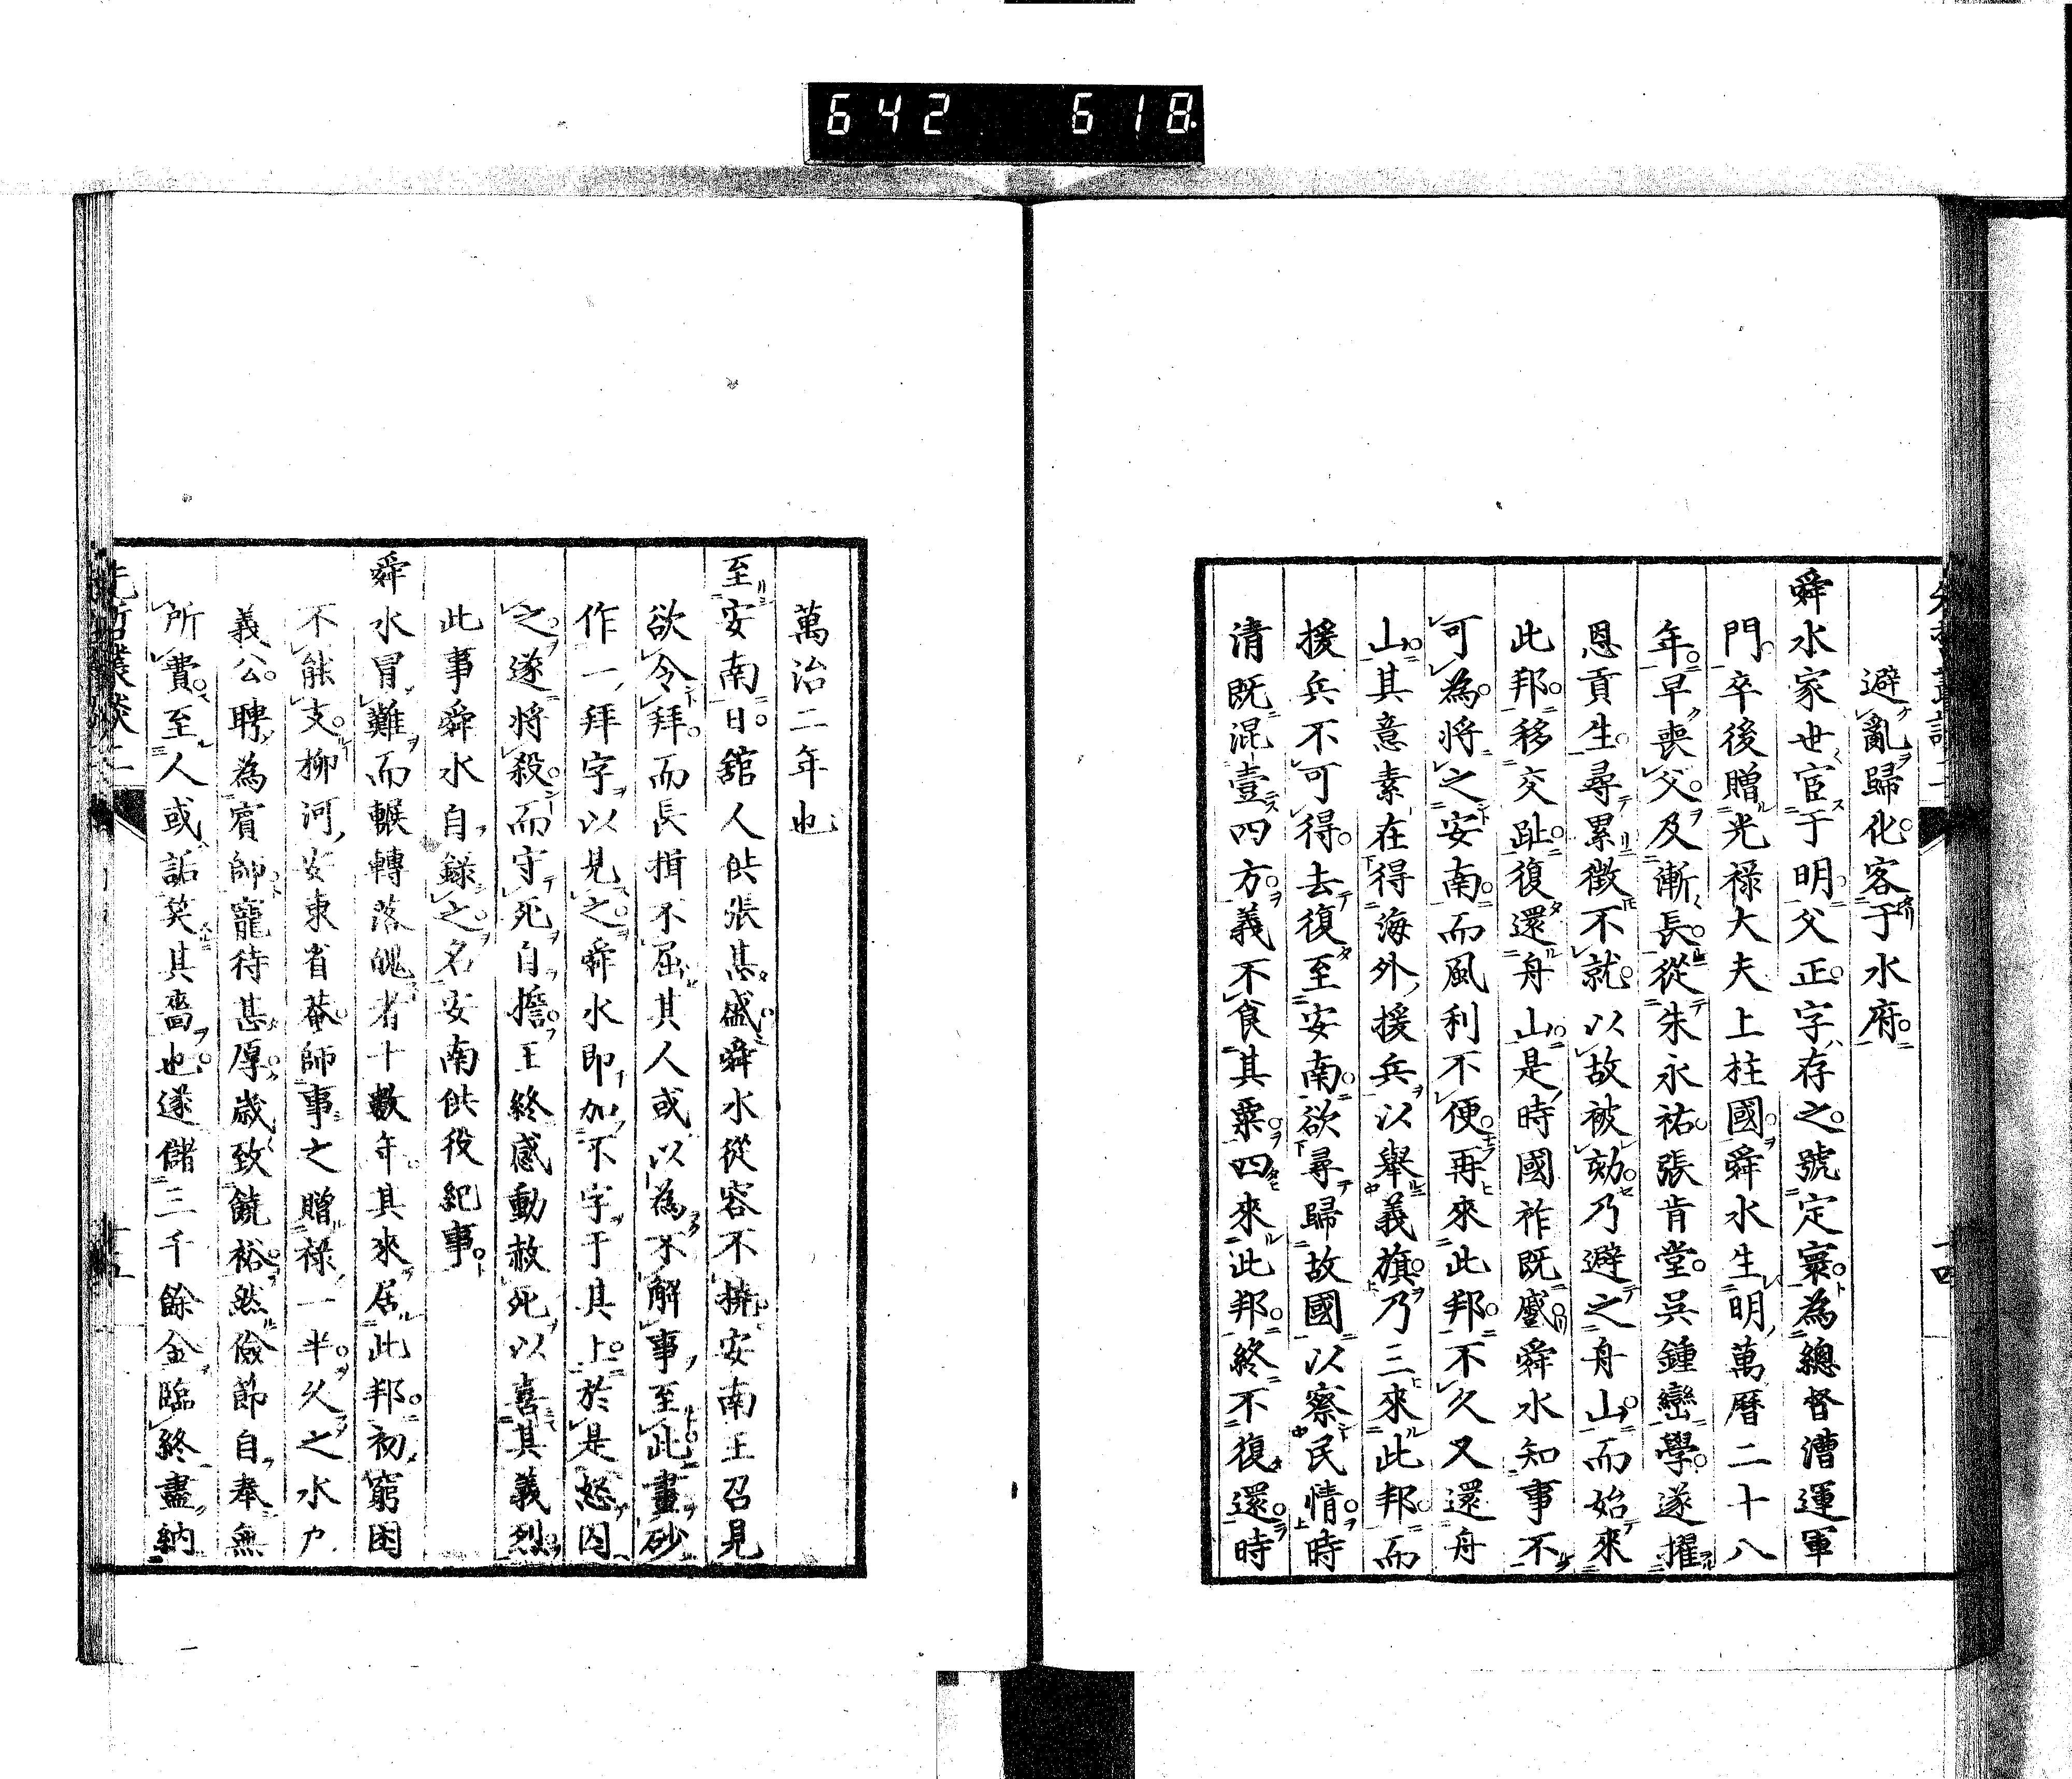 642 618
避亂歸化客于水府
舜水家世宦于明父正字存之號定寰為總督漕運軍
門卒後贈光祿大夫上柱國舜水生明萬曆二十八
年早喪父及漸長從朱永祐張肯堂吳鍾巒學遂擢
恩貢生尋累徵不就以故被劾乃避之舟山而始來
此邦移交趾復還舟山是時國祚既蹙舜水知事不
可為將之安南而風利不便再來此邦不久又還舟
山其意素在得海外援兵以舉義旗乃三來此邦而
援兵不可得去復至安南欲尋歸故國以察民情時
清既混壹四方義不食其粟四來此邦終不復還時
十四
萬治二年也
至安南日舘人供張甚盛舜水從容不擠安南王召見
欲令拜而長揖不屈其人或以為不解事至此畫砂
作一拜字以見之舜水即加不字于其上於是怒囚
之遂將殺而守死自擔王終感動赦死以喜其義烈
此事舜水自錄之名安南供役紀事
舜水冒難而輾轉落魄者十數年其來居此邦初窮困
不能支柳河安東省菴師事之贈祿一半久之水戶
義公聘為賓師寵待甚厚歲致饒裕然儉節自奉無
所費至人或詬笑其嗇也遂儲三千餘金臨終盡納
先哲叢談二
十五